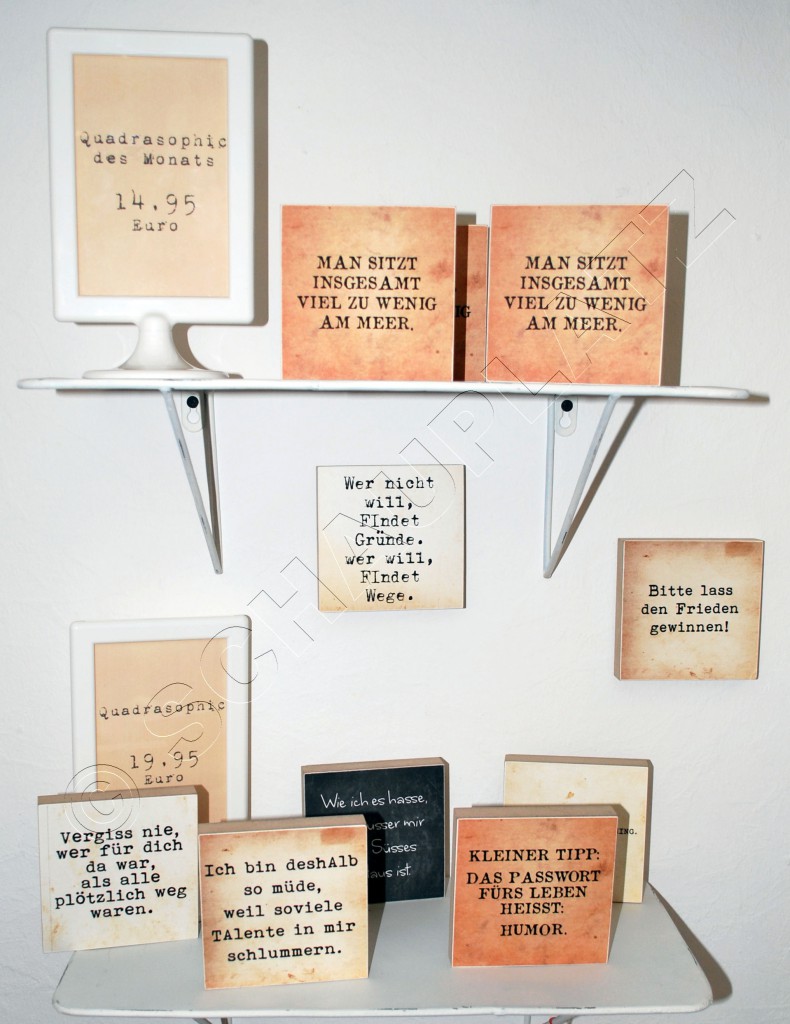 Quadrasophic
des Monats
14.95
Euro
MAN SITZT
INSGESAMT
VIEL ZU WENIG
AM MEER.
IG
MAN SITZT
INSGESAMT
VIEL ZU WENIG
AM MEER.
Wer nicht
will,
FIndet
Gründe.
wer will,
FIndet
Wege.
Bitte lass
den Frieden
gewinnen!
Quadrasophic
19.95
Euro
Vergiss nie,
wer für dich
da war,
als alle
plötzlich weg
waren.
Ich bin deshAlb
so müde,
weil soviele
TAlente in mir
schlummern.
Wie ich es hasse,
usser mir
Süsses
aus ist.
KLEINER TIPP:
DAS PASSWORT
FÜRS LEBEN
HEISST:
HUMOR.
ING.
© SCHAUPLATZ